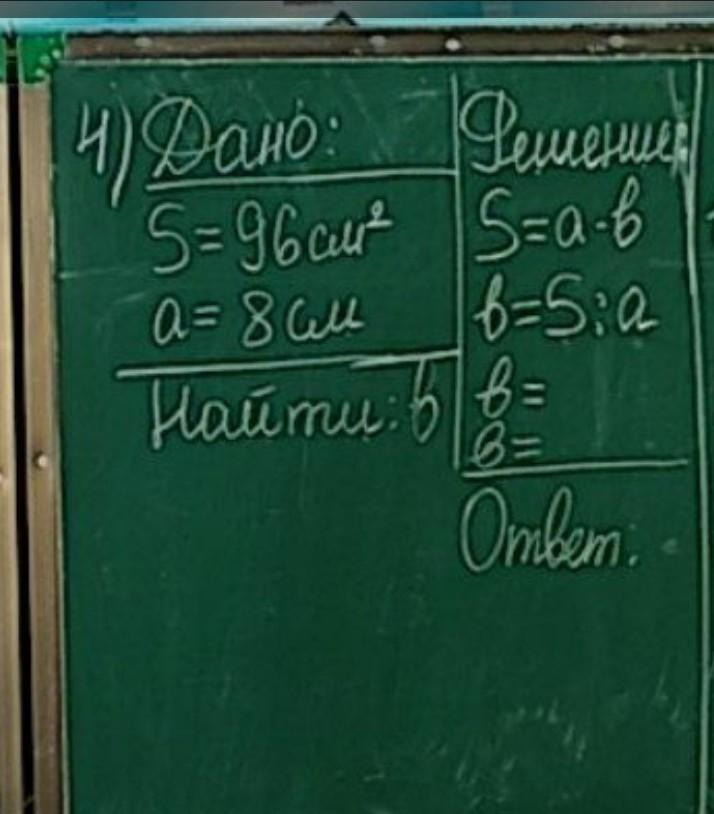 4) Дано:
S=96см²
a=8см
Найти: b
Решение:
S=a·b
b=S:a
b=
b=
Ответ: